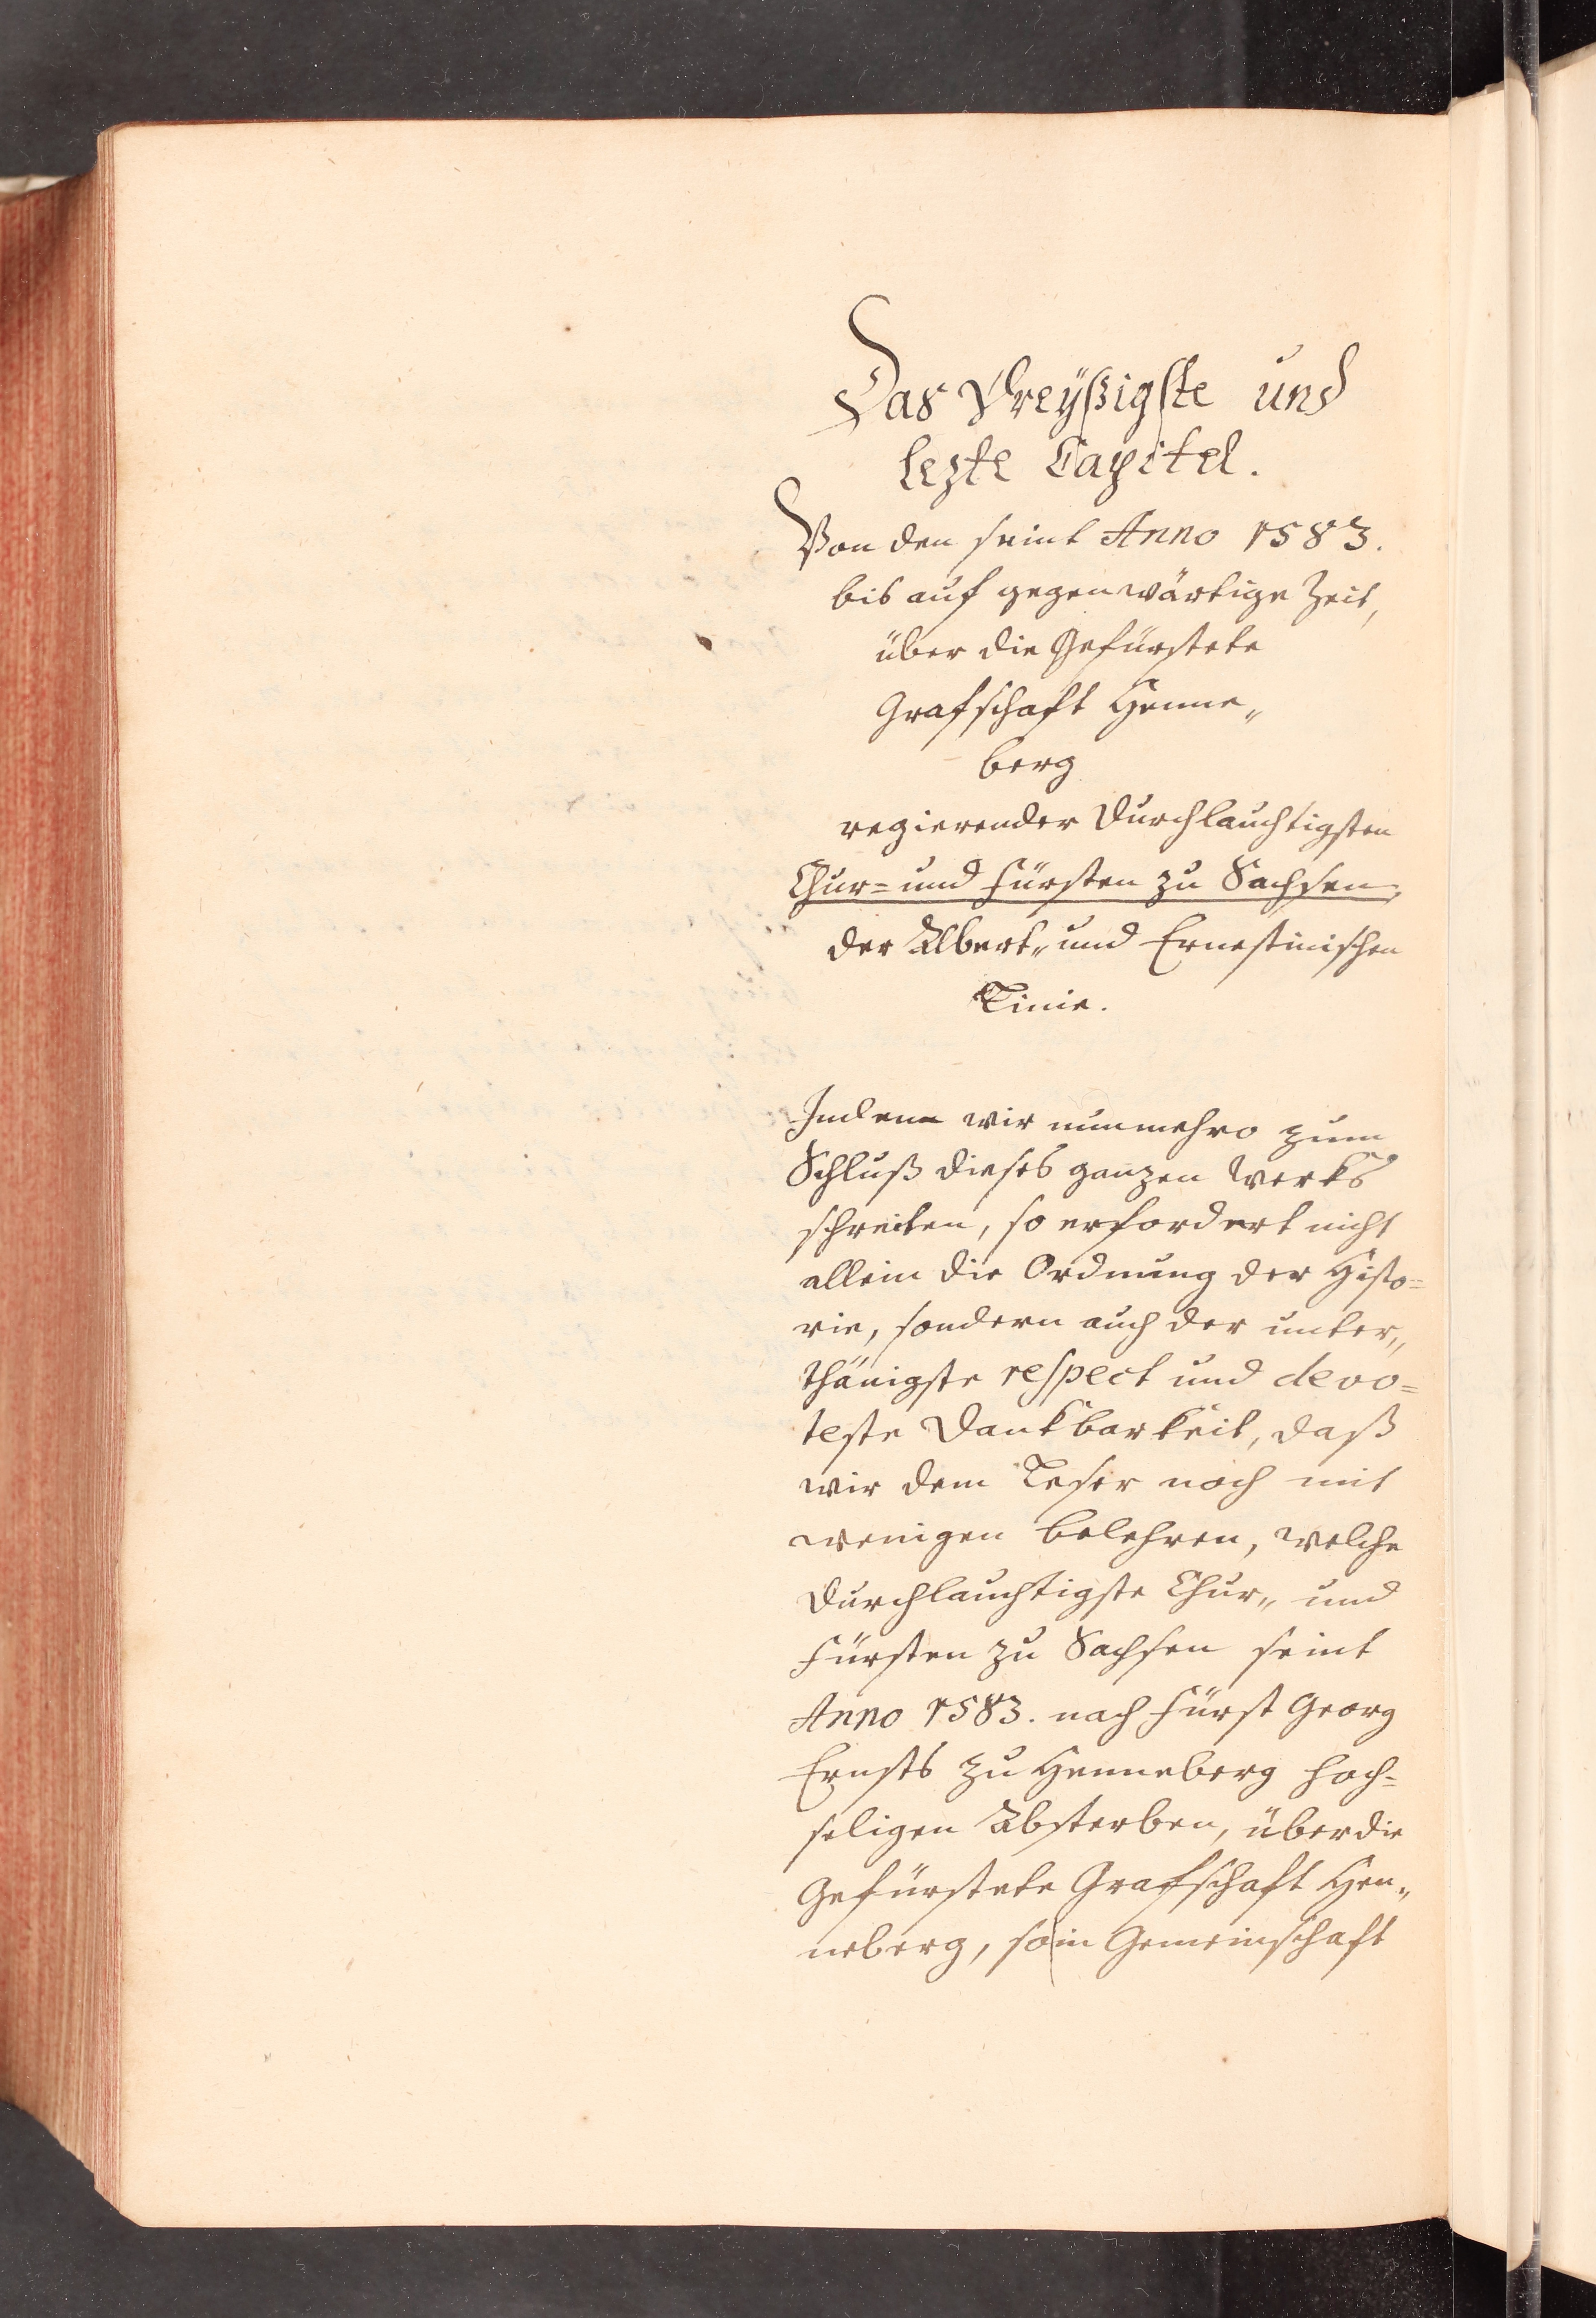 Das Dreyßigste und
lezte Capitel.
Von den seint Anno 1583.
bis auf gegenwärtige Zeit,
über die Gefürstete
Grafschaft Henne„
berg
regierender Durchlauchtigsten
Chur= und Fürsten zu Sachsen,
der Albert„ und Ernestinischen
Linie.
Indem wir nunmehro zum
Schluß dieses ganzen Werks
schreiten, so erfordert nicht
allein die Ordnung der Histo=
rie, sondern auch der unter„
thänigste respect und devo=
teste Dankbarkeit, daß
wir dem Leser noch mit
wenigen belehren, welche
Durchlauchtigste Chur„ und
Fürsten zu Sachsen seint
Anno 1583. nach Fürst Georg
Ernsts zu Henneberg hoch=
seligen Absterben, über die
Gefürstete Grafschaft Hen„
neberg, so in Gemeinschaft